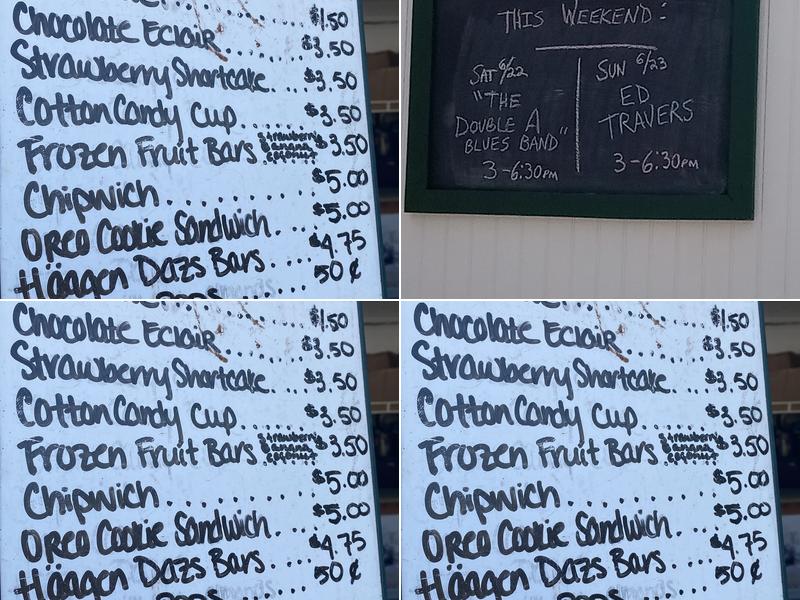 $1.50
Chocolate Eclair........ $3.50
Strawberry Shortcake.... $3.50
Cotton Candy Cup...... $3.50
Frozen Fruit Bars Strawberry Banana Coconut $3.50
Chipwich.......... $5.00
Oreo Cookie Sandwich... $5.00
Häagen Dazs Bars..... $4.75
50¢
THIS WEEKEND:
SAT 6/22
"THE
DOUBLE A
BLUES BAND"
3-6:30PM
SUN 6/23
ED
TRAVERS
3-6:30PM
$1.50
Chocolate Eclair........ $3.50
Strawberry Shortcake.... $3.50
Cotton Candy Cup...... $3.50
Frozen Fruit Bars Strawberry Banana Coconut $3.50
Chipwich.......... $5.00
Oreo Cookie Sandwich... $5.00
Häagen Dazs Bars..... $4.75
50¢
$1.50
Chocolate Eclair........ $3.50
Strawberry Shortcake.... $3.50
Cotton Candy Cup...... $3.50
Frozen Fruit Bars Strawberry Banana Coconut $3.50
Chipwich.......... $5.00
Oreo Cookie Sandwich... $5.00
Häagen Dazs Bars..... $4.75
50¢